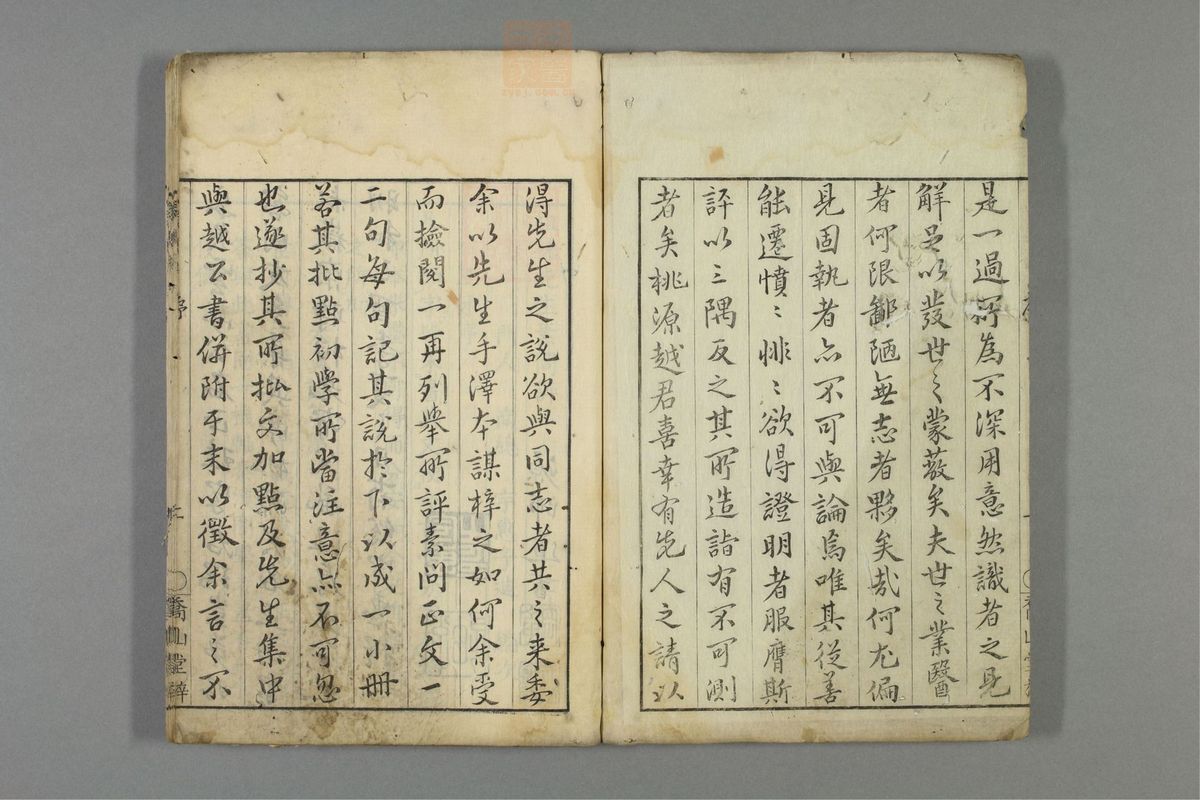 是一過所為不深用意然識者之見
解足以發世之蒙蔽矣夫世之業醫
者何限鄙陋無志者夥矣哉何尤偏
見固執者亦不可與論焉唯其從善
能遷憤〻悱〻欲得證明者服膺斯
評以三隅反之其所造詣有不可測
者矣桃源越君喜幸有先人之請以
得先生之說欲與同志者共之来委
余以先生手澤本謀梓之如何余受
而撿閱一再列舉所評素問正文一
二句每句記其說於下以成一小冊
若其批點初學所當注意亦不可忽
也遂抄其所批文加點及先生集中
與越公書併附于末以徵余言之不
序
喬山堂辭
zyey.com.cn